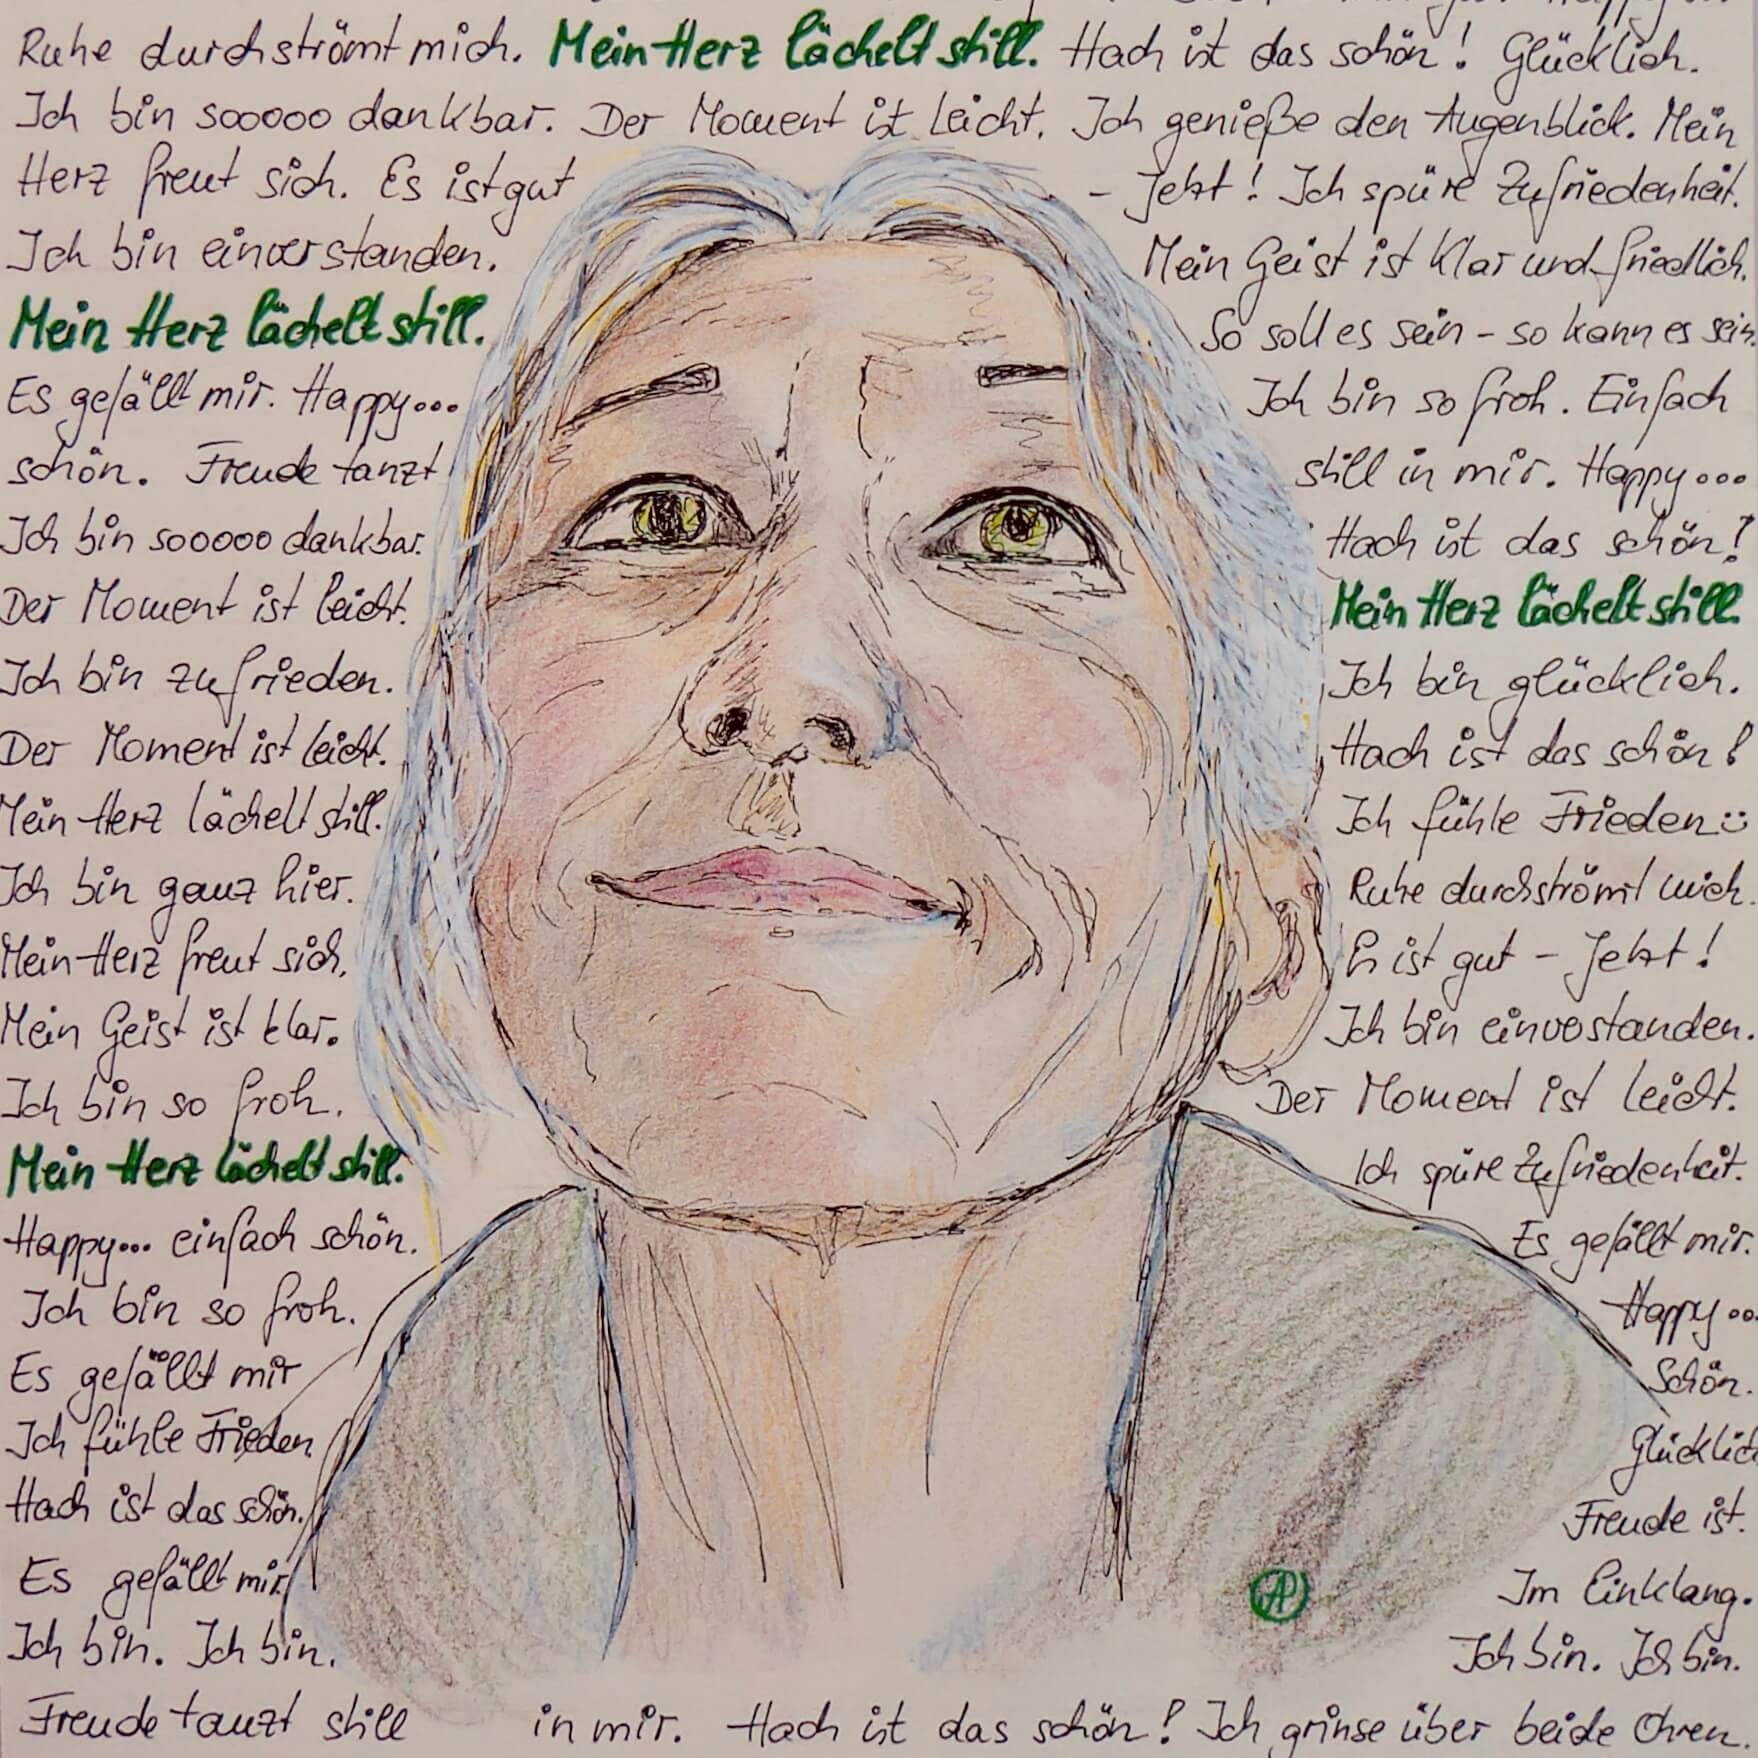 Ruhe durchströmt mich. Mein Herz lächelt still. Hach ist das schön! Glücklich.
Ich bin sooooo dankbar. Der Moment ist leicht. Ich genieße den Augenblick. Mein
Herz freut sich. Es ist gut - Jetzt! Ich spüre Zufriedenheit.
Ich bin einverstanden. Mein Geist ist klar und friedlich.
Mein Herz lächelt still. So soll es sein - so kann es sein.
Es gefällt mir. Happy... Ich bin so froh. Einfach
schön. Freude tanzt still in mir. Happy...
Ich bin sooooo dankbar. Hach ist das schön!
Der Moment ist leicht. Mein Herz lächelt still.
Ich bin zufrieden. Ich bin glücklich.
Der Moment ist leicht. Hach ist das schön!
Mein Herz lächelt still. Ich fühle Frieden
Ich bin ganz hier. Ruhe durchströmt mich.
Mein Herz freut sich. Es ist gut - Jetzt!
Mein Geist ist klar. Ich bin einverstanden.
Ich bin so froh. Der Moment ist leicht.
Mein Herz lächelt still. Ich spüre Zufriedenheit.
Happy... einfach schön. Es gefällt mir.
Ich bin so froh. Happy...
Es gefällt mir Schön.
Ich fühle Frieden Glücklich
Hach ist das schön. Freude ist.
Es gefällt mir. Im Einklang.
AP
Ich bin. Ich bin. Ich bin. Ich bin.
Freude tanzt still in mir. Hach ist das schön! Ich grinse über beide Ohren.